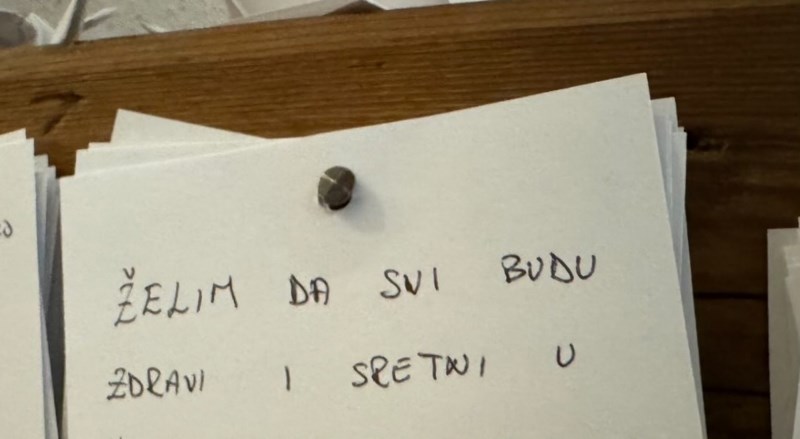 ŽELIM DA SVI BUDU
ZDRAVI I SRETNI U